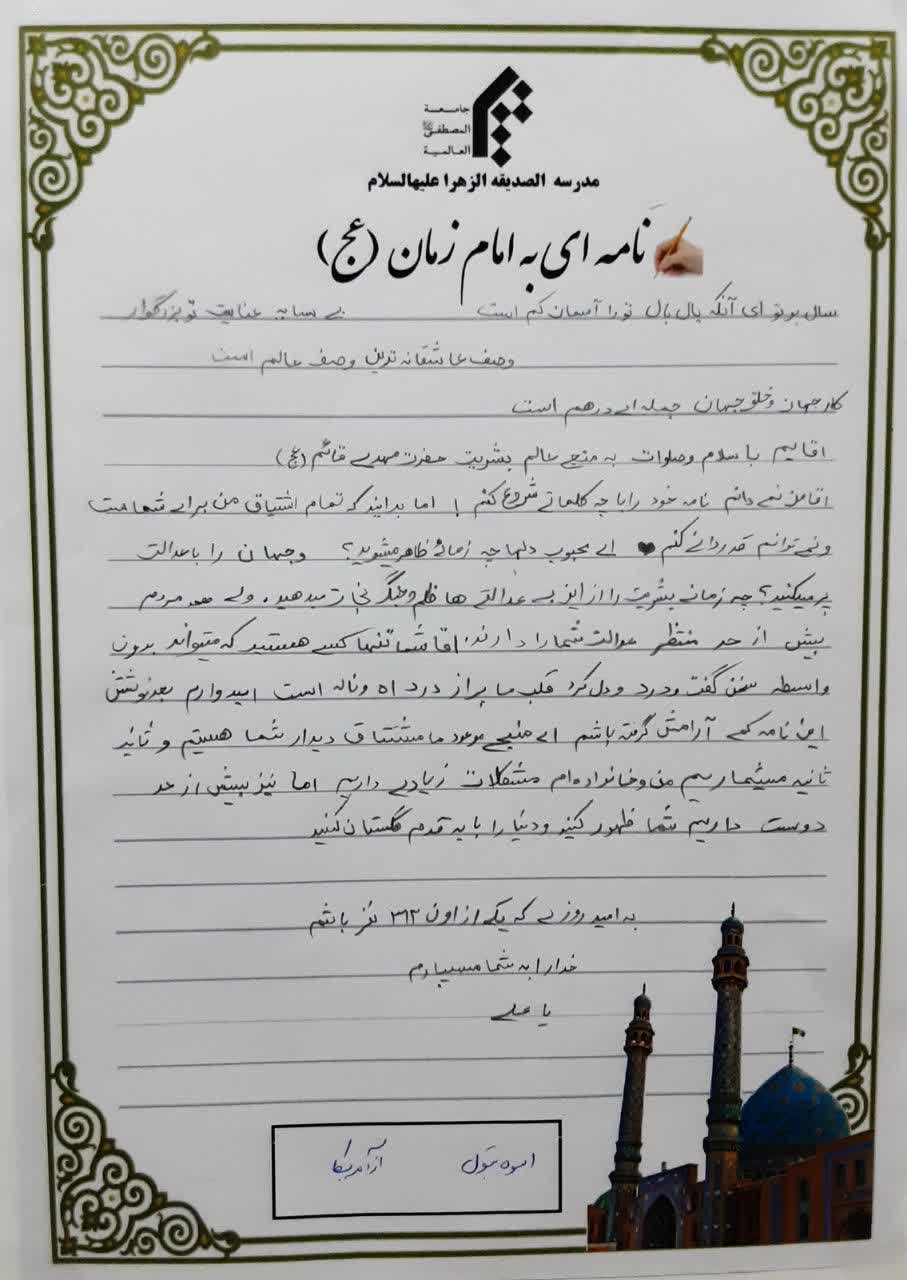 جامعـة
المصطفی ﷺ
العالمية
مدرسه الصديقه الزهرا عليهاالسلام
نامه ای به امام زمان (عج)
سال بر تو ای آنکه بال بال تو را آسمان کم است بی سایه عنایت تو بزرگوار
وصف عاشقانه ترین وصف عالم است
کار جهان و خلق جهان جمله ای درهم است
اقایم با سلام وصلوات به منجی عالم بشریت حضرت مهدی قائم (عج)
اقا من نمی دانم نامه خود را با چه کلماتی شروع کنم ! اما بدانید که تمام اشتیاق من برای شماست
ونمی توانم قدردانی کنم ای محبوب دلها چه زمانی ظاهر میشوید؟ وجهان را با عدالت
پر میکنید؟ چه زمانی بشریت را از این بی عدالتی ها ظلم وجنگ نجات میدهید، ولی همه مردم
بیش از حد منتظر عدالت شما را دارند، اقا شما تنها کسی هستید که میتواند بدون
واسطه سخن گفت ودرد و دل کرد قلب ما پر از درد اه وناله است امیدوارم بعد نوشتن
این نامه کمی آرامش گرفته باشم ای منجی موعود ما مشتاق دیدار شما هستیم و ثانیه
ثانیه میشماریم من وخانواده ام مشکلات زیادی داریم اما نیز بیش از حد
دوست داریم شما ظهور کنید ودنیا را با یه قدم گلستان کنید
به امید روزی که یکی از اون ۳۱۳ نفر باشم
خدا را به شما میسپارم
یا علی
اسوه بتول از آمریکا